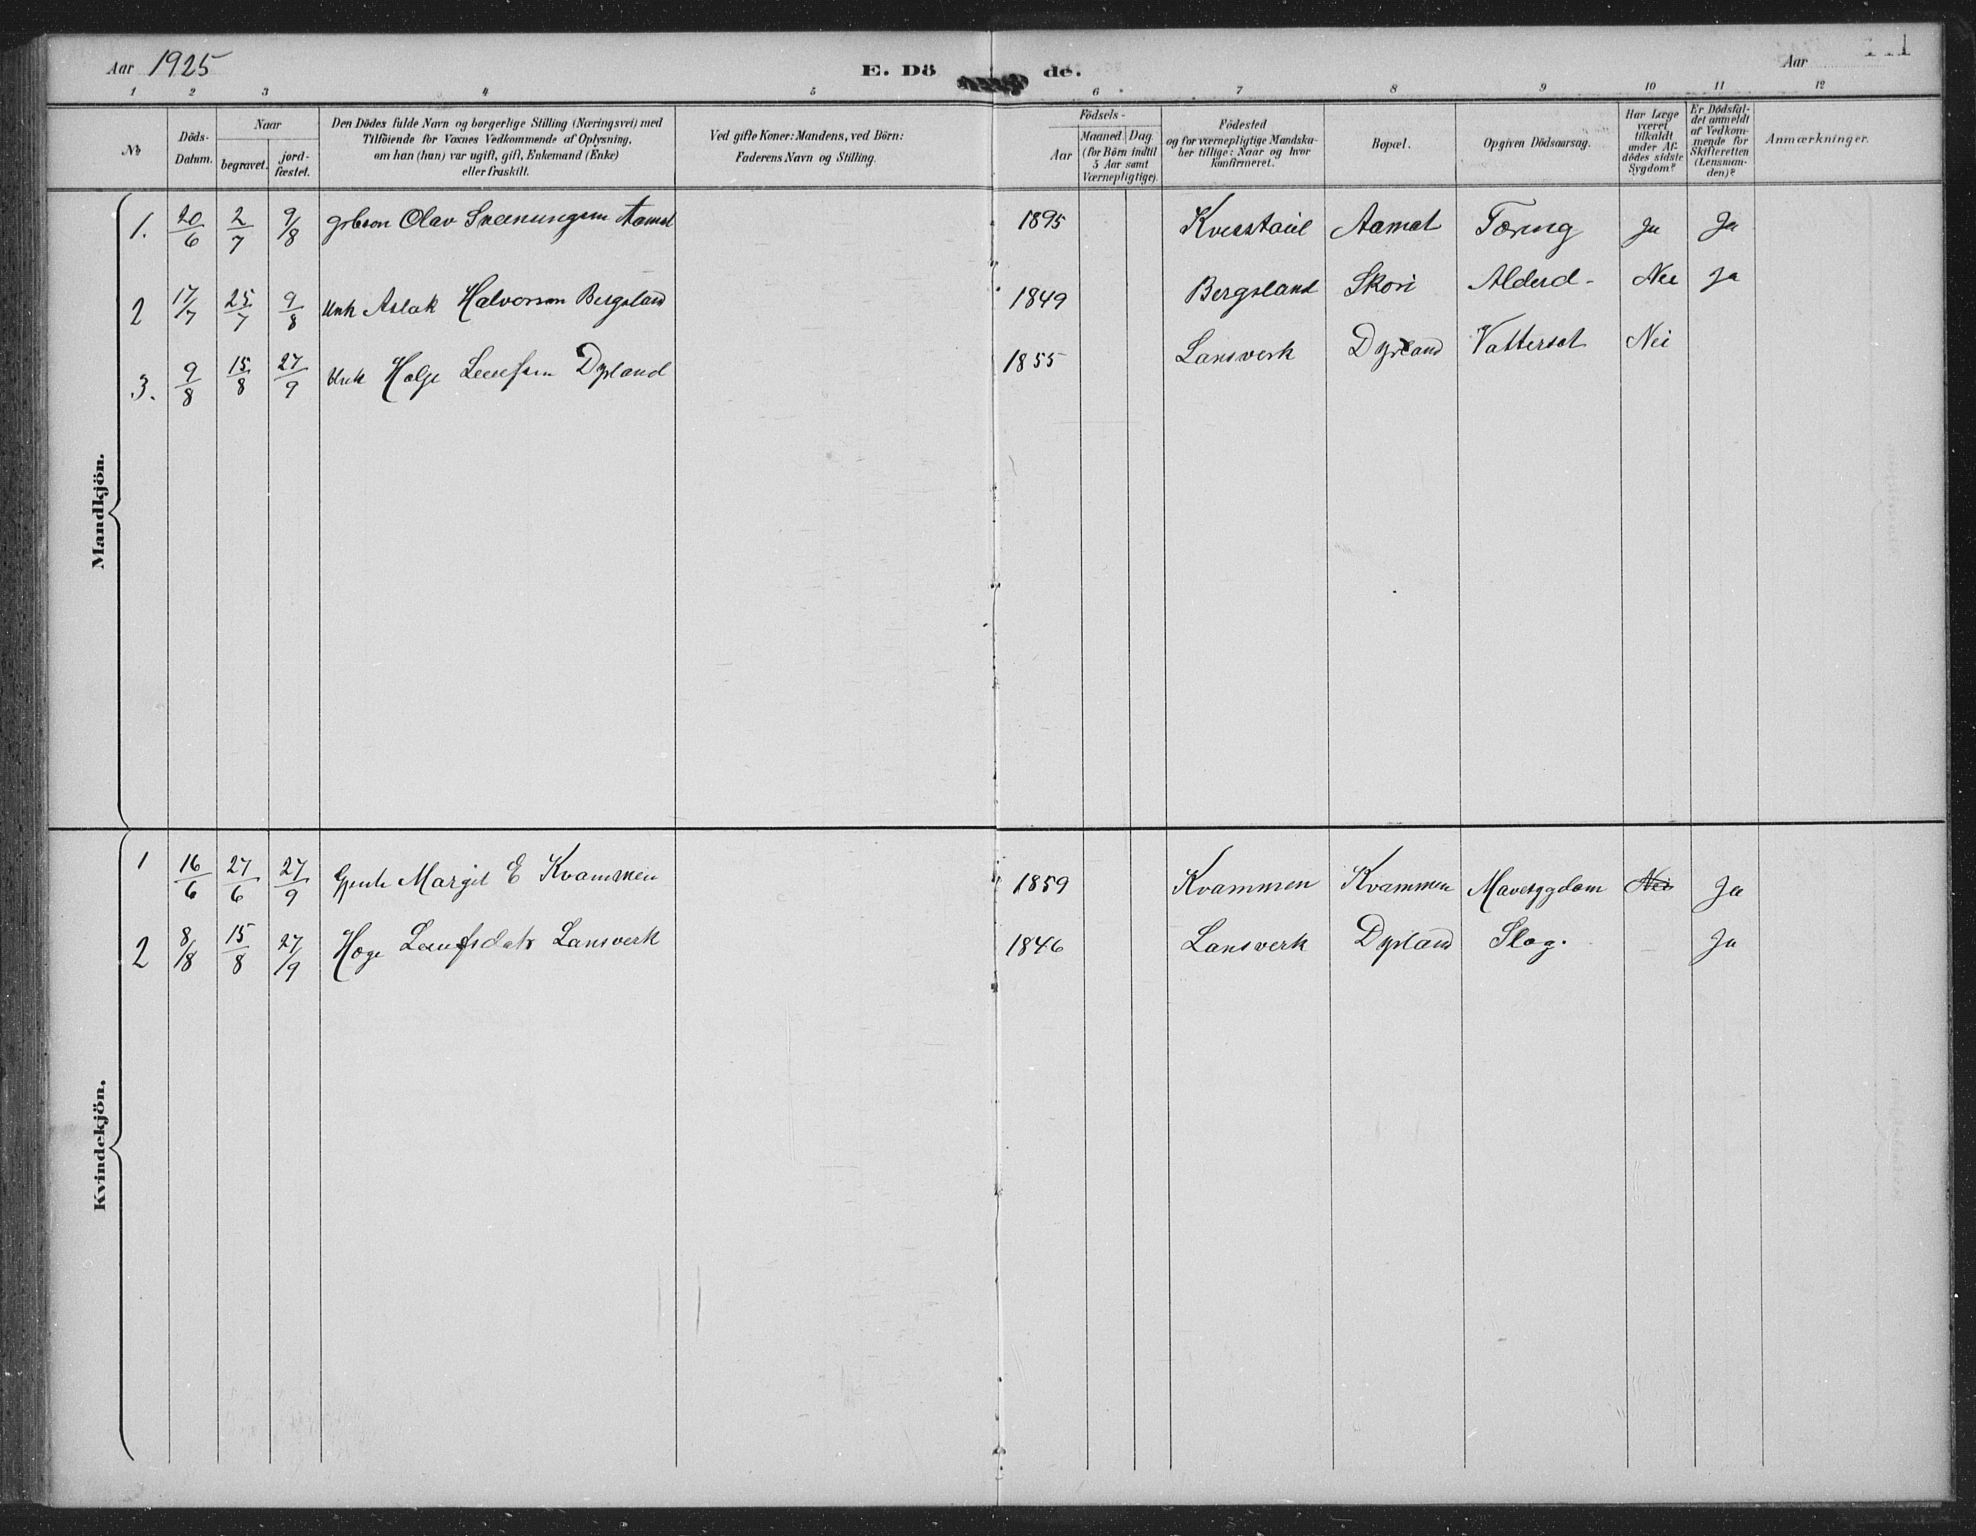 Aar 1925 E. Dö de. Aar
1 2 3 4 5 6 7 8 9 10 11 12
№
Döds-
Datum.
Naar
begravet.
jord-
fæstet.
Den Dödes fulde Navn og borgerlige Stilling (Næringsvei) med
Tilföiende for Voxnes Vedkommende af Oplysning,
om han (hun) var ugift, gift, Enkemand (Enke)
eller fraskilt.
Ved gifte Koner: Mandens, ved Börn:
Faderens Navn og Stilling.
Födsels-
Aar
Maaned. Dag.
(for Börn indtil
5 Aar samt
Værnepligtige).
Födested
og for værnepligtige Mandska-
ber tillige: Naar og hvor
konfirmeret.
Bopæl.
Opgiven Dödsaarsag.
Har Læge
været
tilkaldt
under Af-
dödes sidste
Sygdom?
Er Dödsfal-
det anmeldt
af Vedkom-
mende for
Skifteretten
(Lensman-
den)?
Anmærkninger.
Mandkjön.
1. 20/6 2/7 9/8 Olav Aamot 1895 Aamot Tæring Ja Ja
2 17/7 25/7 9/8 Unk Aslak Halvorson Bergsland 1849 Bergsland Skori Alderd- Nei Ja
3. 9/8 15/8 27/9 Unk Helge Dyrland 1855 Lansverk Dyrland Vattersot Nei
Kvindekjön.
1 16/6 27/6 27/9 Gjente Margit E Kvammen 1859 Kvammen Kvammen Mavesygdom Nei Ja
2 8/8 15/8 27/9 Hæge Lansverk 1846 Lansverk Dyrland Slag. Ja